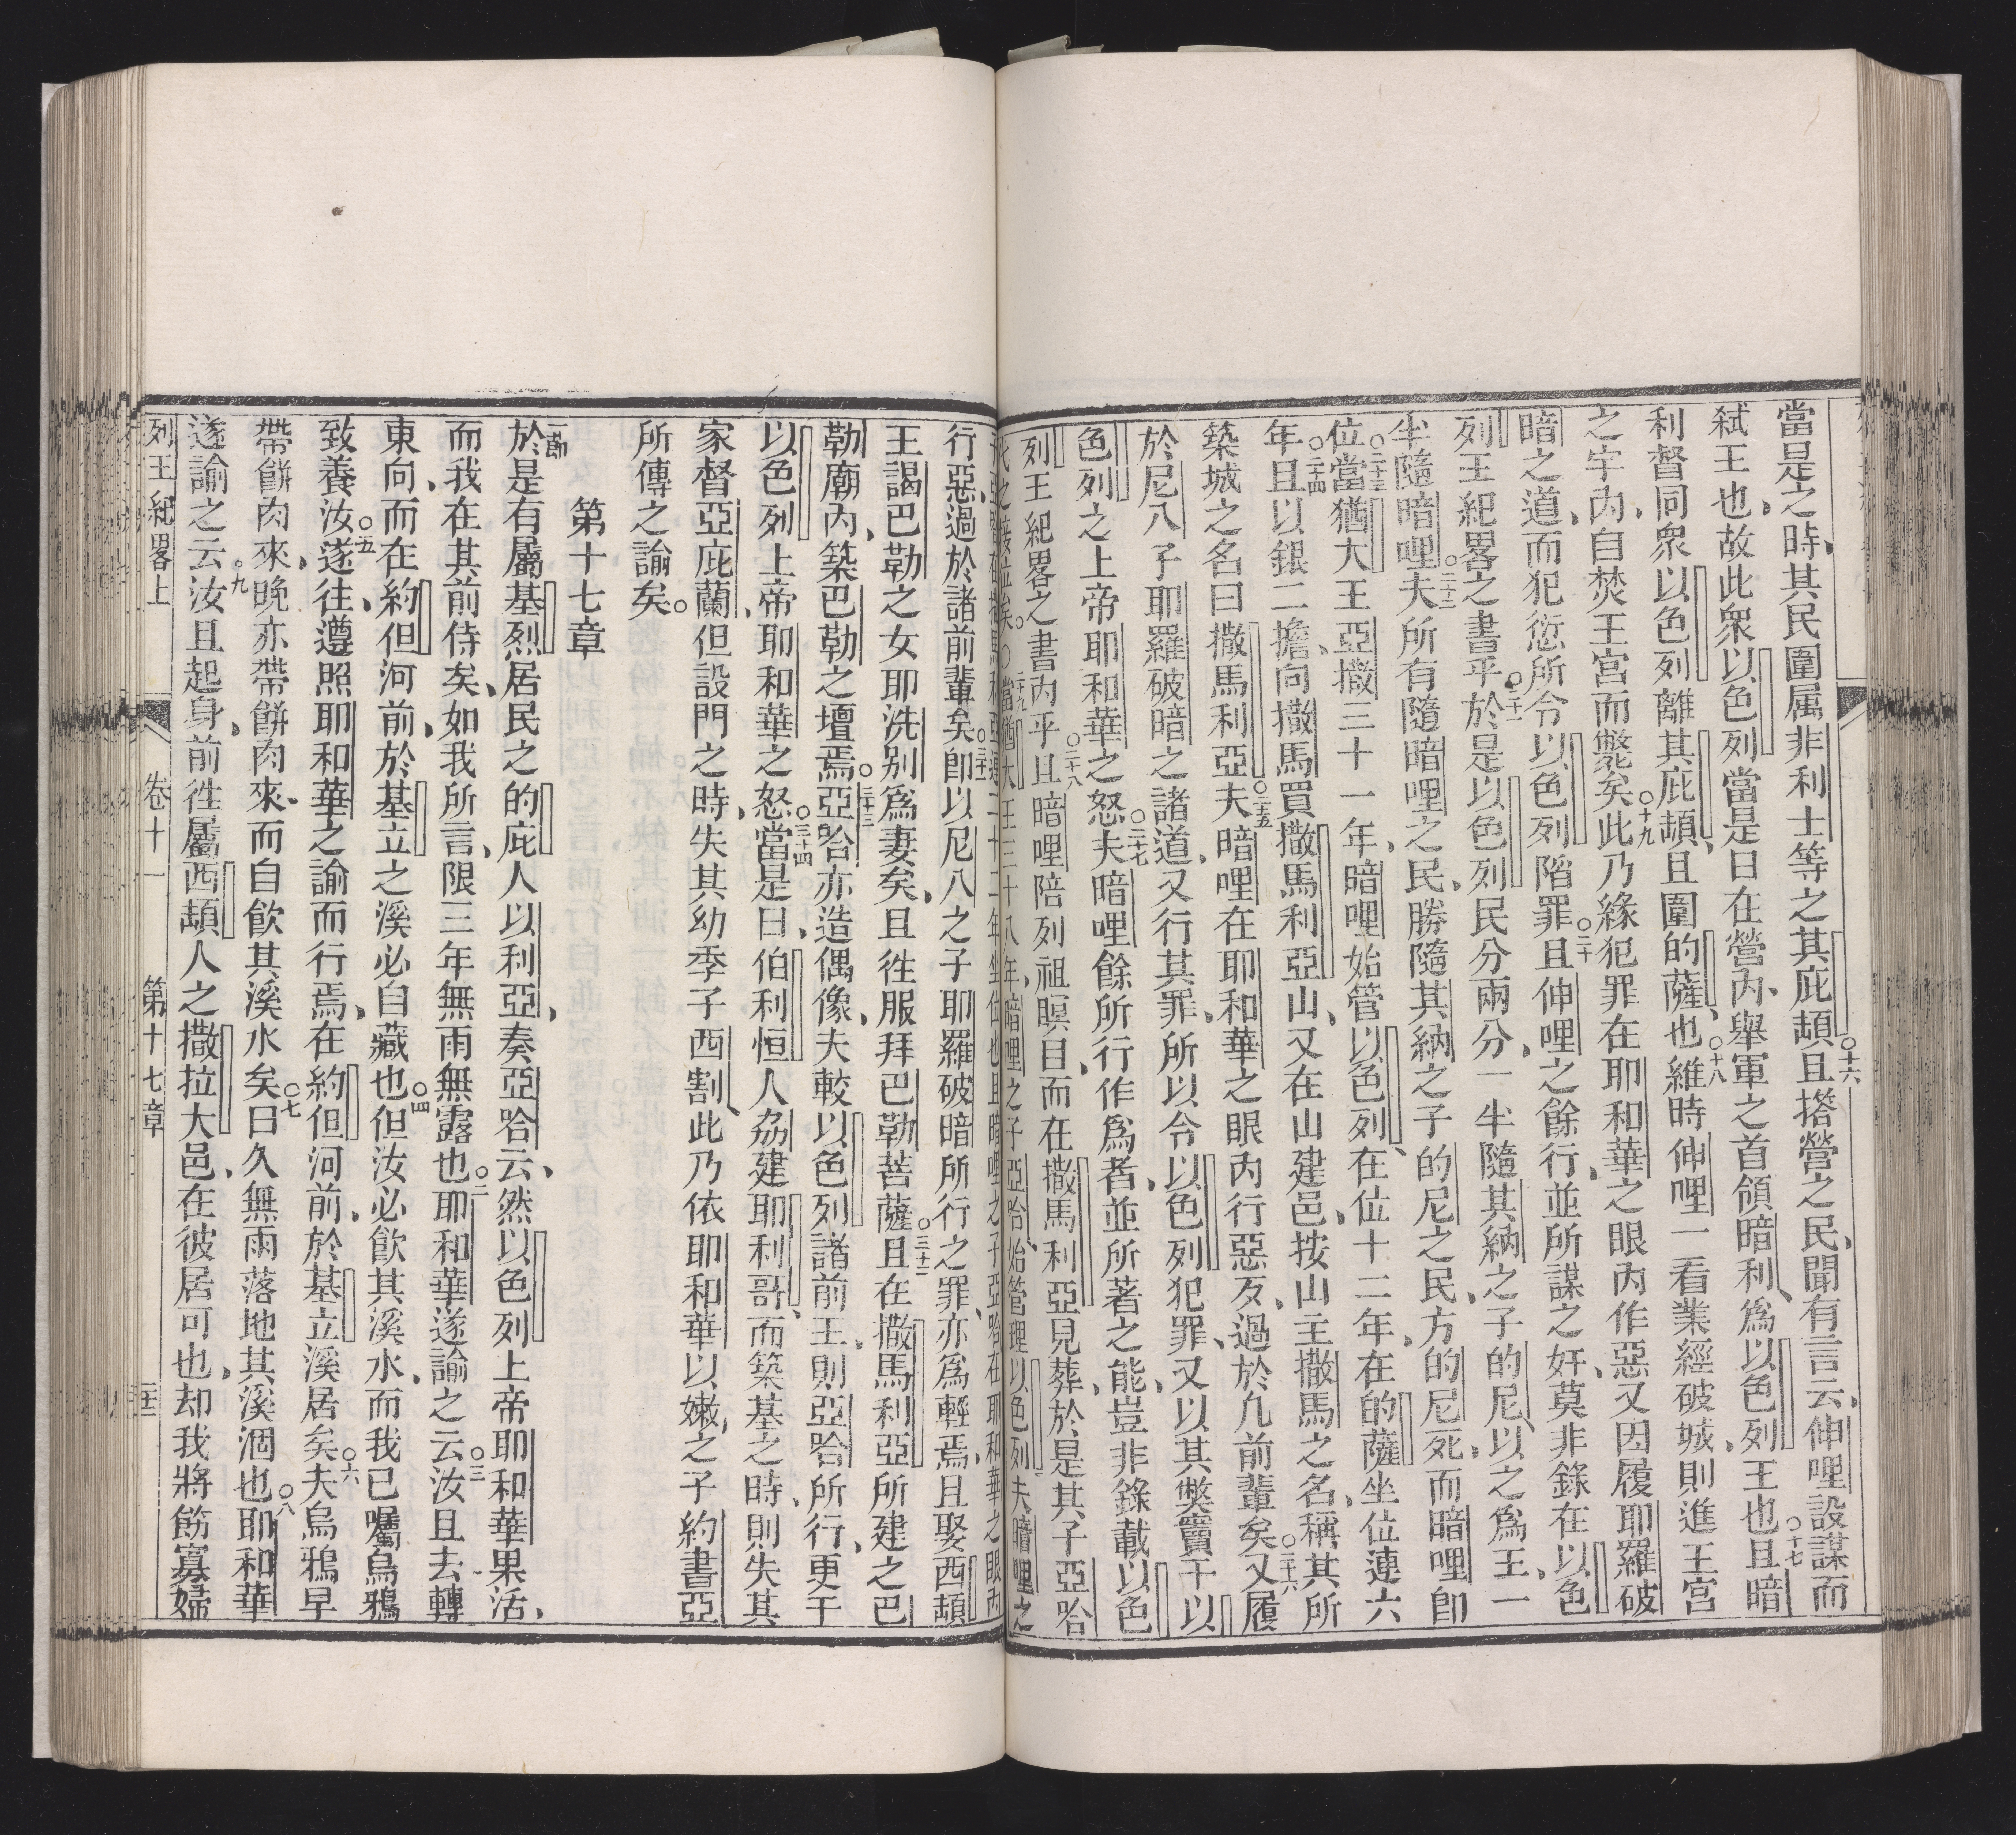 當是之時、其民圍属非利士等之其庇頡○十六且搭營之民、聞有言云、伸哩設謀而
弒王也、故此衆以色列當是日在營內、舉軍之首領暗利、爲以色列王也○十七且暗
利督同衆以色列離其庇頡、且圍的薩、也○十八維時伸哩一看業經破城、則進王宮
之宇內、自焚王宮而斃矣○十九此乃緣犯罪在耶和華之眼內作惡又因履耶羅破
暗之道、而犯愆所令以色列陷罪○二十且伸哩之餘行、並所謀之奸、莫非錄在以色
列王紀畧之書乎○二十一於是以色列民分兩分、一半隨其納之子的尼、以之爲王、一
半隨暗哩○二十二夫所有隨暗哩之民、勝隨其納之子的尼之民、方的尼死、而暗哩卽
位○二十三當猶大王亞撒三十一年、暗哩始管以色列、在位十二年、在的薩坐位連六
年○二十四且以銀二擔、向撒馬買撒馬利亞山、又在山建邑、按山主撒馬之名、稱其所
築城之名曰撒馬利亞○二五夫暗哩在耶和華之眼內行惡歹、過於凢前輩矣○二十六又履
於尼八子耶羅破暗之諸道、又行其罪、所以令以色列犯罪、又以其獘竇干以
色列之上帝耶和華之怒○二十七夫暗哩餘所行作爲者、並所著之能、豈非錄載以色
列王紀畧之書內乎○二十八且暗哩陪列祖瞑目、而在撒馬利亞見葬、於是其子亞哈
行惡、過於諸前輩矣○三十一卽以尼八之子耶羅破暗所行之罪、亦爲輕焉、且娶西頡
王謁巴勒之女耶洗别爲妻矣、且徃服拜巴勒菩薩○三十二且在撒馬利亞所建之巴
勒廟內、築巴勒之壇焉○三十三亞哈亦造偶像、夫較以色列諸前王、則亞哈所行、更干
以色列上帝耶和華之怒○三十四當是日、伯利恒人刕建耶利哥、而築基之時、則失其
家督亞庇蘭、但設門之時、失其幼季子西割、此乃依耶和華以嫩之子約書亞
所傳之諭矣○
第十七章
一節於是有屬基烈居民之的庇人以利亞、奏亞哈云、然以色列上帝耶和華果活、
而我在其前侍矣、如我所言、限三年無雨無露也○二耶和華遂諭之云○三汝且去轉
東向、而在約但河前、於基立之溪必自藏也○四但汝必飮其溪水、而我已囑烏鴉
致養汝○五遂徃、遵照耶和華之諭而行焉、在約但河前、於基立溪居矣○六夫烏鴉早
帶餅肉來、晚亦帶餅肉來、而自飮其溪水矣○七日久無雨落地其溪涸也○八耶和華
遂諭之云○九汝且起身、前徃屬西頡人之撒拉大邑、在彼居可也、却我將飭寡婦
列王紀畧上 卷十一 第十七章